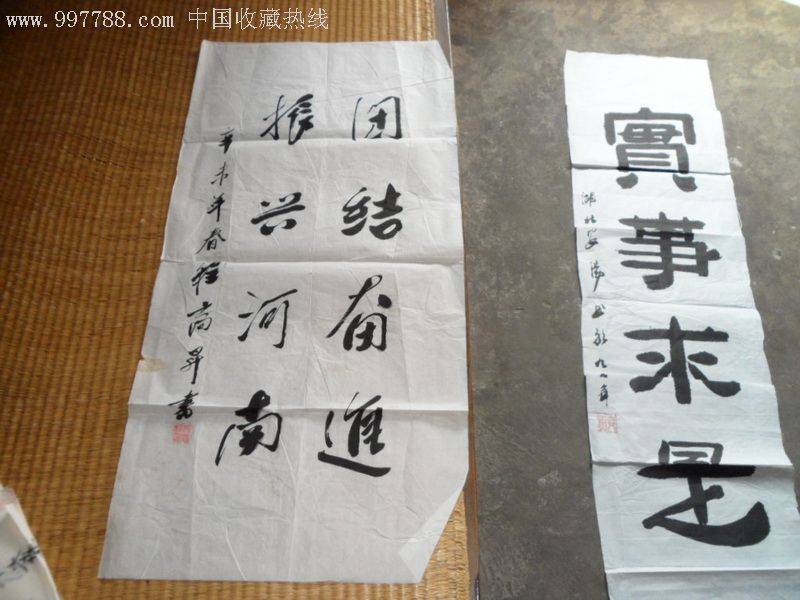 www.997788.com 中国收藏热线
团结奋進
振兴河南
辛未年春程高昇書
實事求是
湖北
九一年